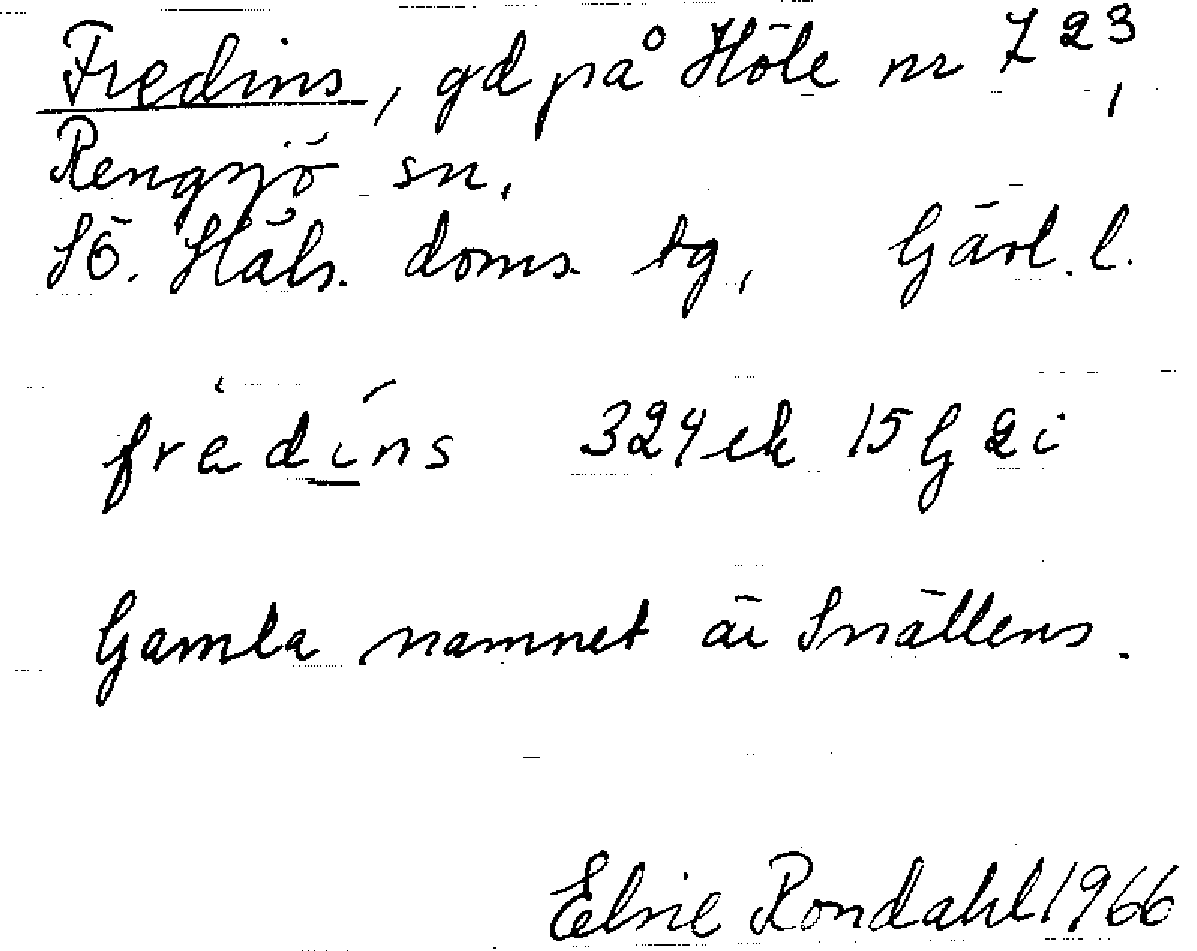 Fredins, gd på Höle nr 7 23,
Rengsjö sn,
Sö. Häls. doms tg, Gävl. l.
frèdíns 324 ek 15 G 2 i
Gamla namnet är Snällens.
Elsie Rondahl 1966